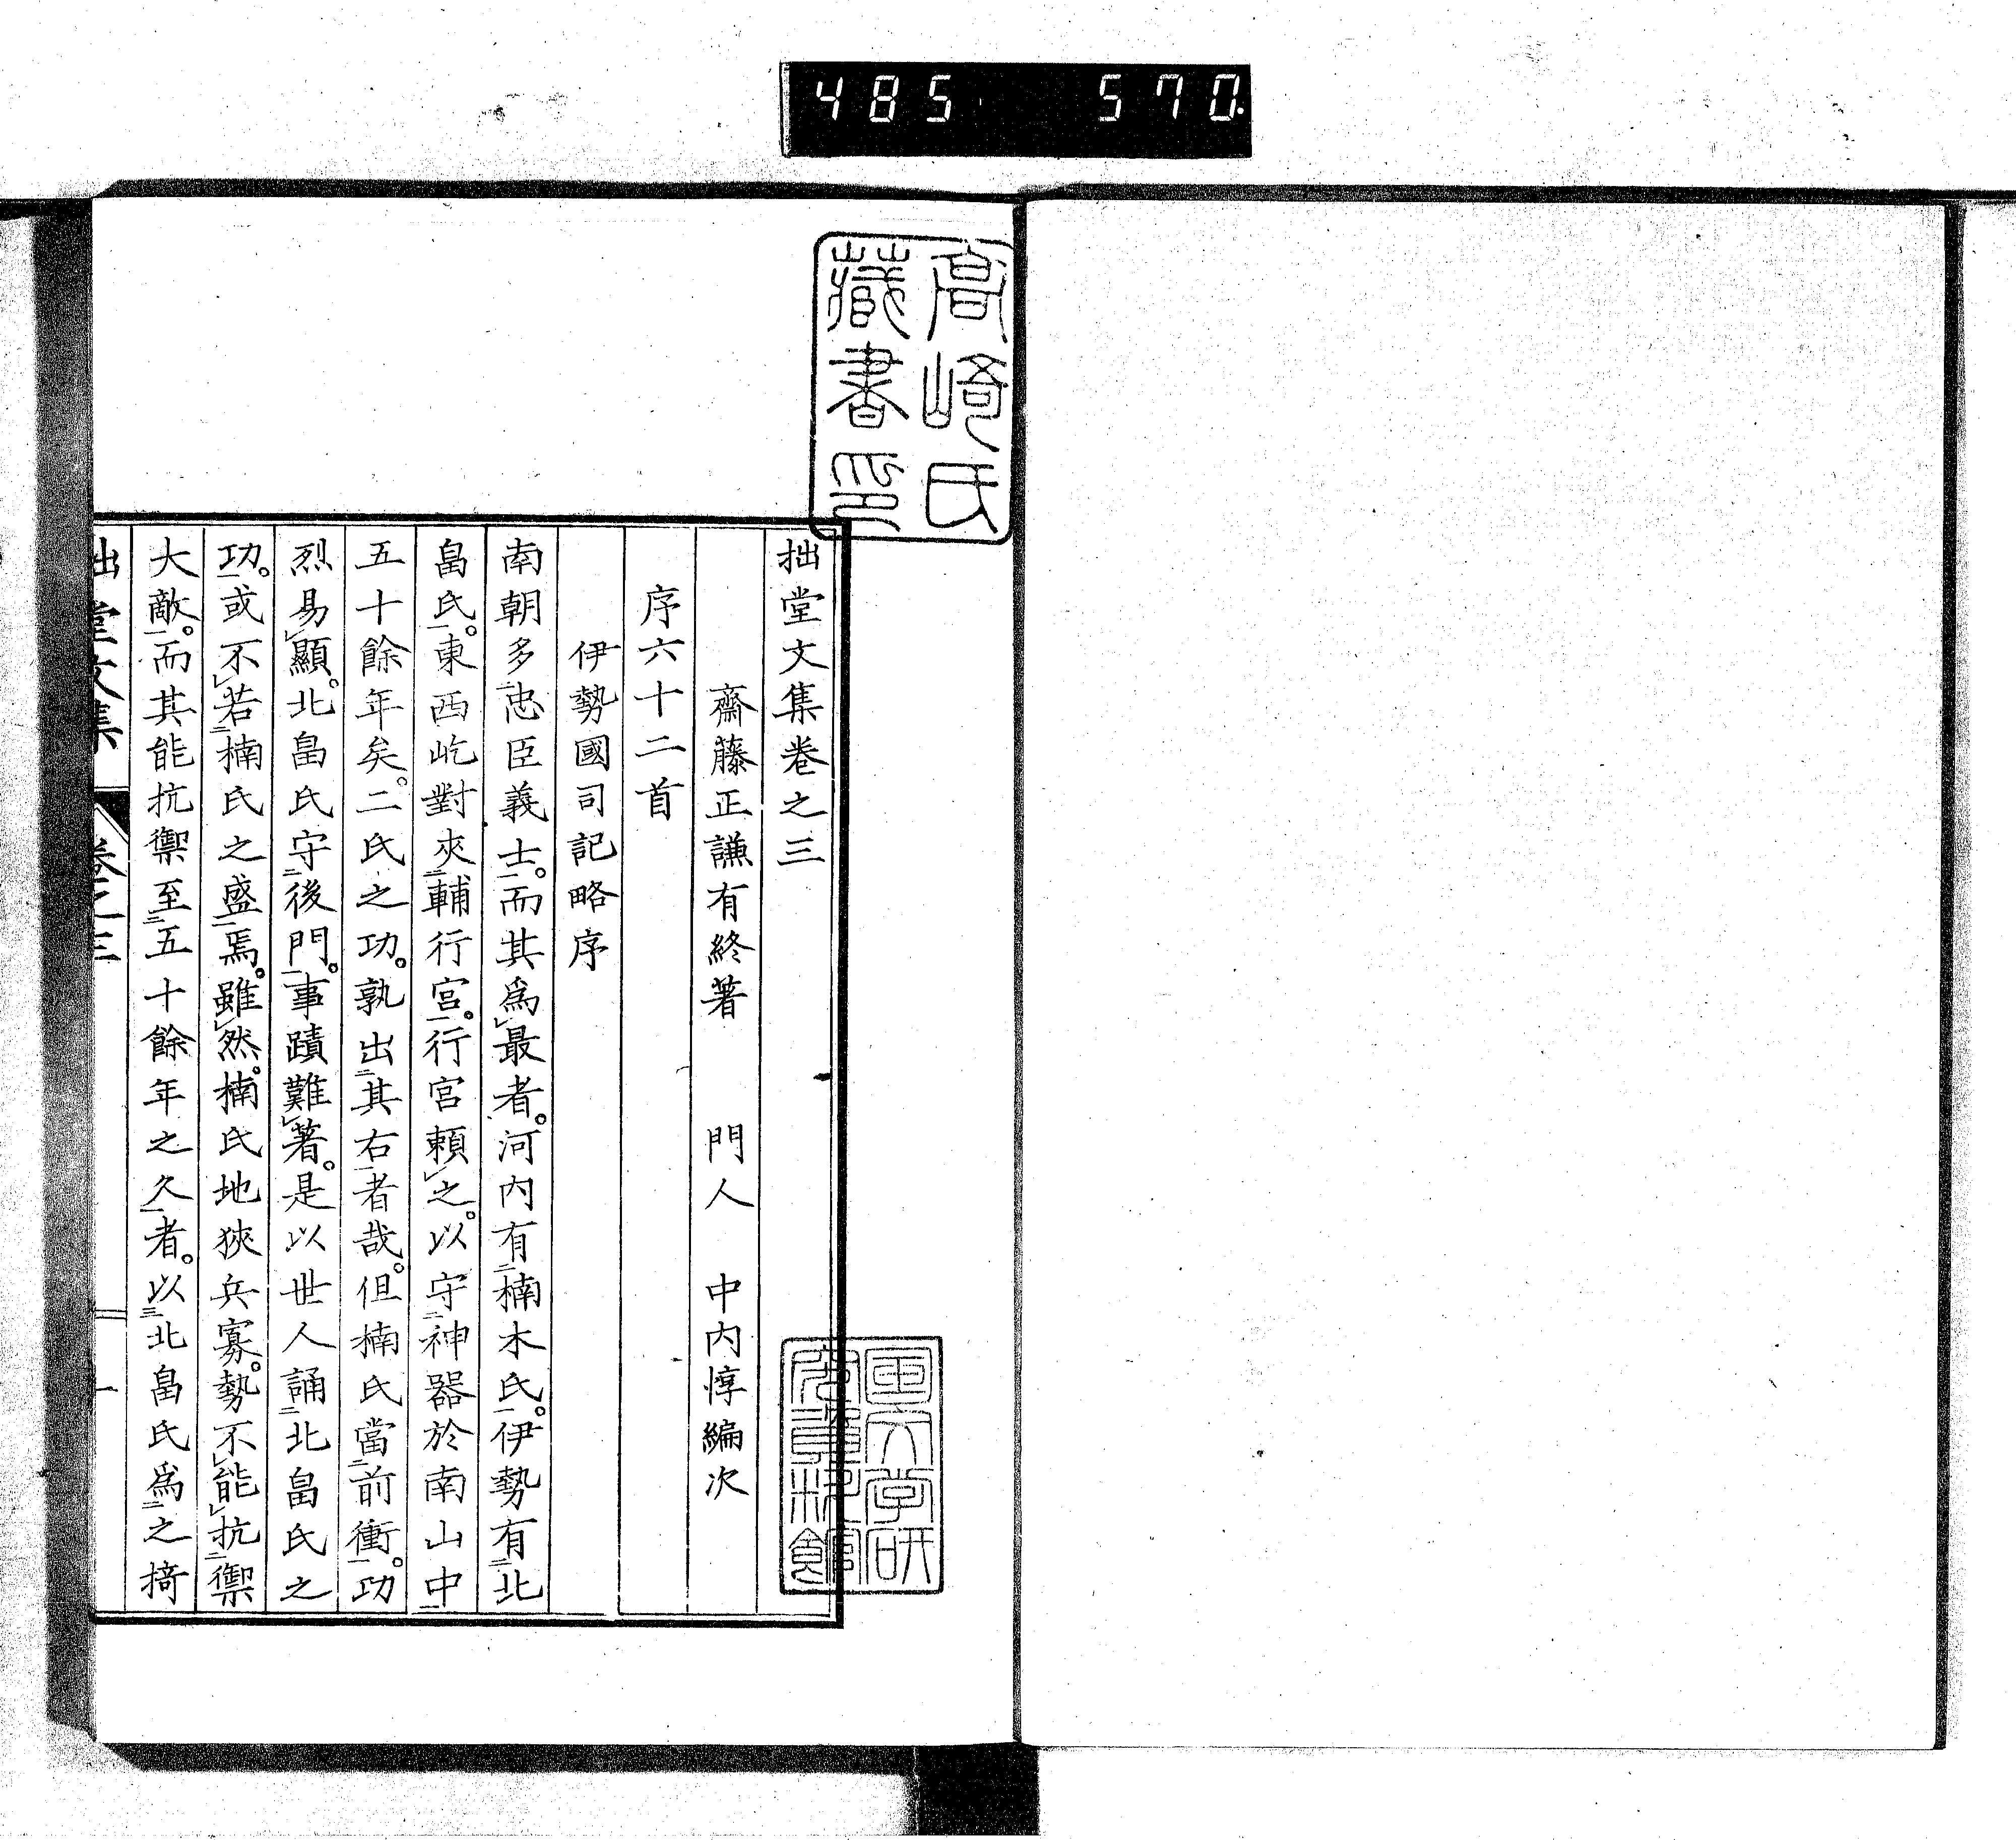 485 570.
高崎氏
藏書印
拙堂文集卷之三
齋藤正謙有終著 門人 中内惇編次
序六十二首
伊勢國司記略序
南朝多忠臣義士。而其爲最者。河内有楠木氏。伊勢有北
畠氏。東西屹對夾輔行宮。行宮賴之。以守神器於南山中
五十餘年矣。二氏之功。孰出其右者哉。但楠氏當前衝。功
烈易顯。北畠氏守後門。事蹟難著。是以世人誦北畠氏之
功。或不若楠氏之盛焉。雖然。楠氏地狹兵寡。勢不能抗禦
大敵。而其能抗禦至五十餘年之久者。以北畠氏爲之掎
拙堂文集 卷之三 一